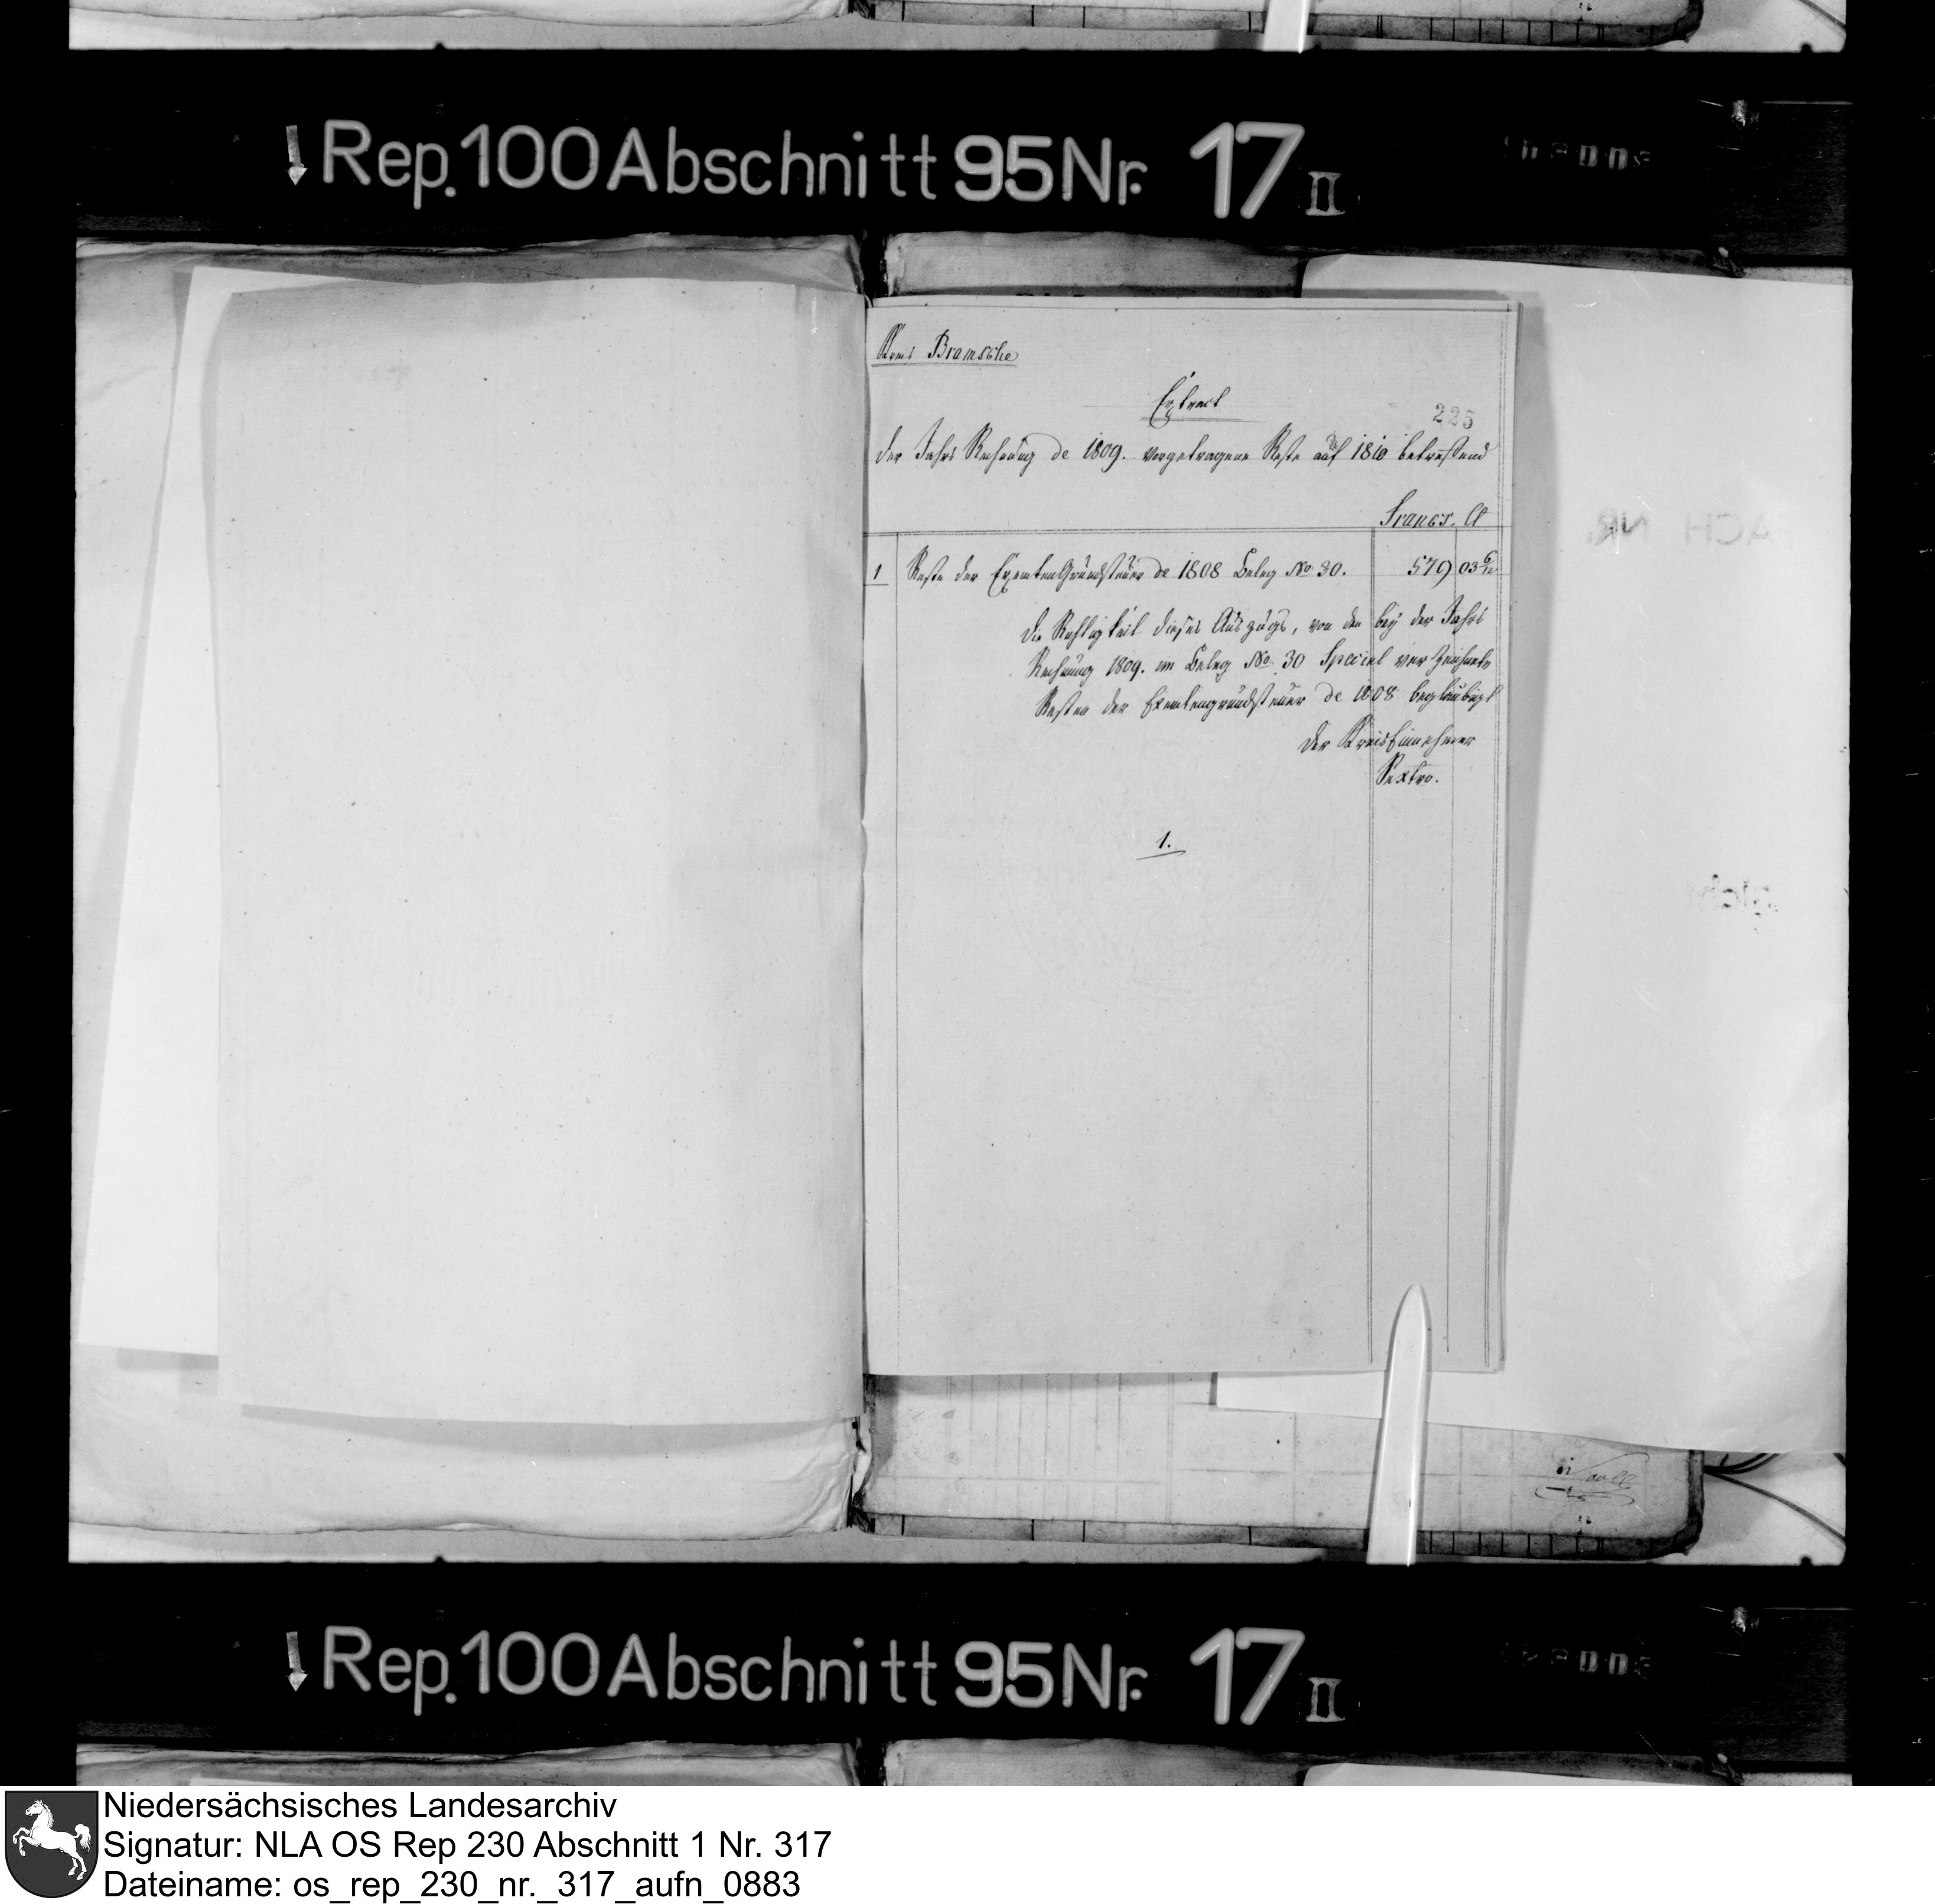 Rep. 100 Abschnitt 95 Nr. 17 II
Kreis Bramsche
Extract
225
der Jahrs Rechnung de 1809. vorgetragene Reste auf 1810 betreffend
Francs. Ct
1 Reste der Exemten Grundsteuer de 1808 Beleg No 30. 579 03 6/12
Die Richtigkeit dieses Auszugs, von den bey der Jahrs
Rechnung 1809. im Beleg No 30 Special verzeichnete
Resten der Exemtengrundsteuer de 1808 beglaubigt
der Kreis Einnehmer
Sextro.
1.
Rep. 100 Abschnitt 95 Nr. 17 II
Niedersächsisches Landesarchiv
Signatur: NLA OS Rep 230 Abschnitt 1 Nr. 317
Dateiname: os_rep_230_nr._317_aufn_0883